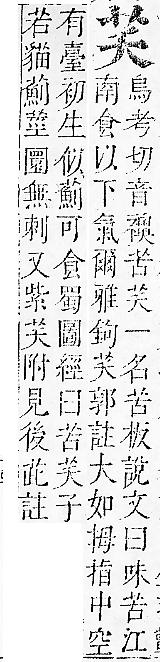 芺烏考切音襖苦芺一名苦板說文曰味苦江
南食以下氣爾雅鉤芺郭註大如拇指中空
有臺初生似薊可食蜀圖經曰苦芺子
若貓薊莖圓無刺又紫芺附見後此註